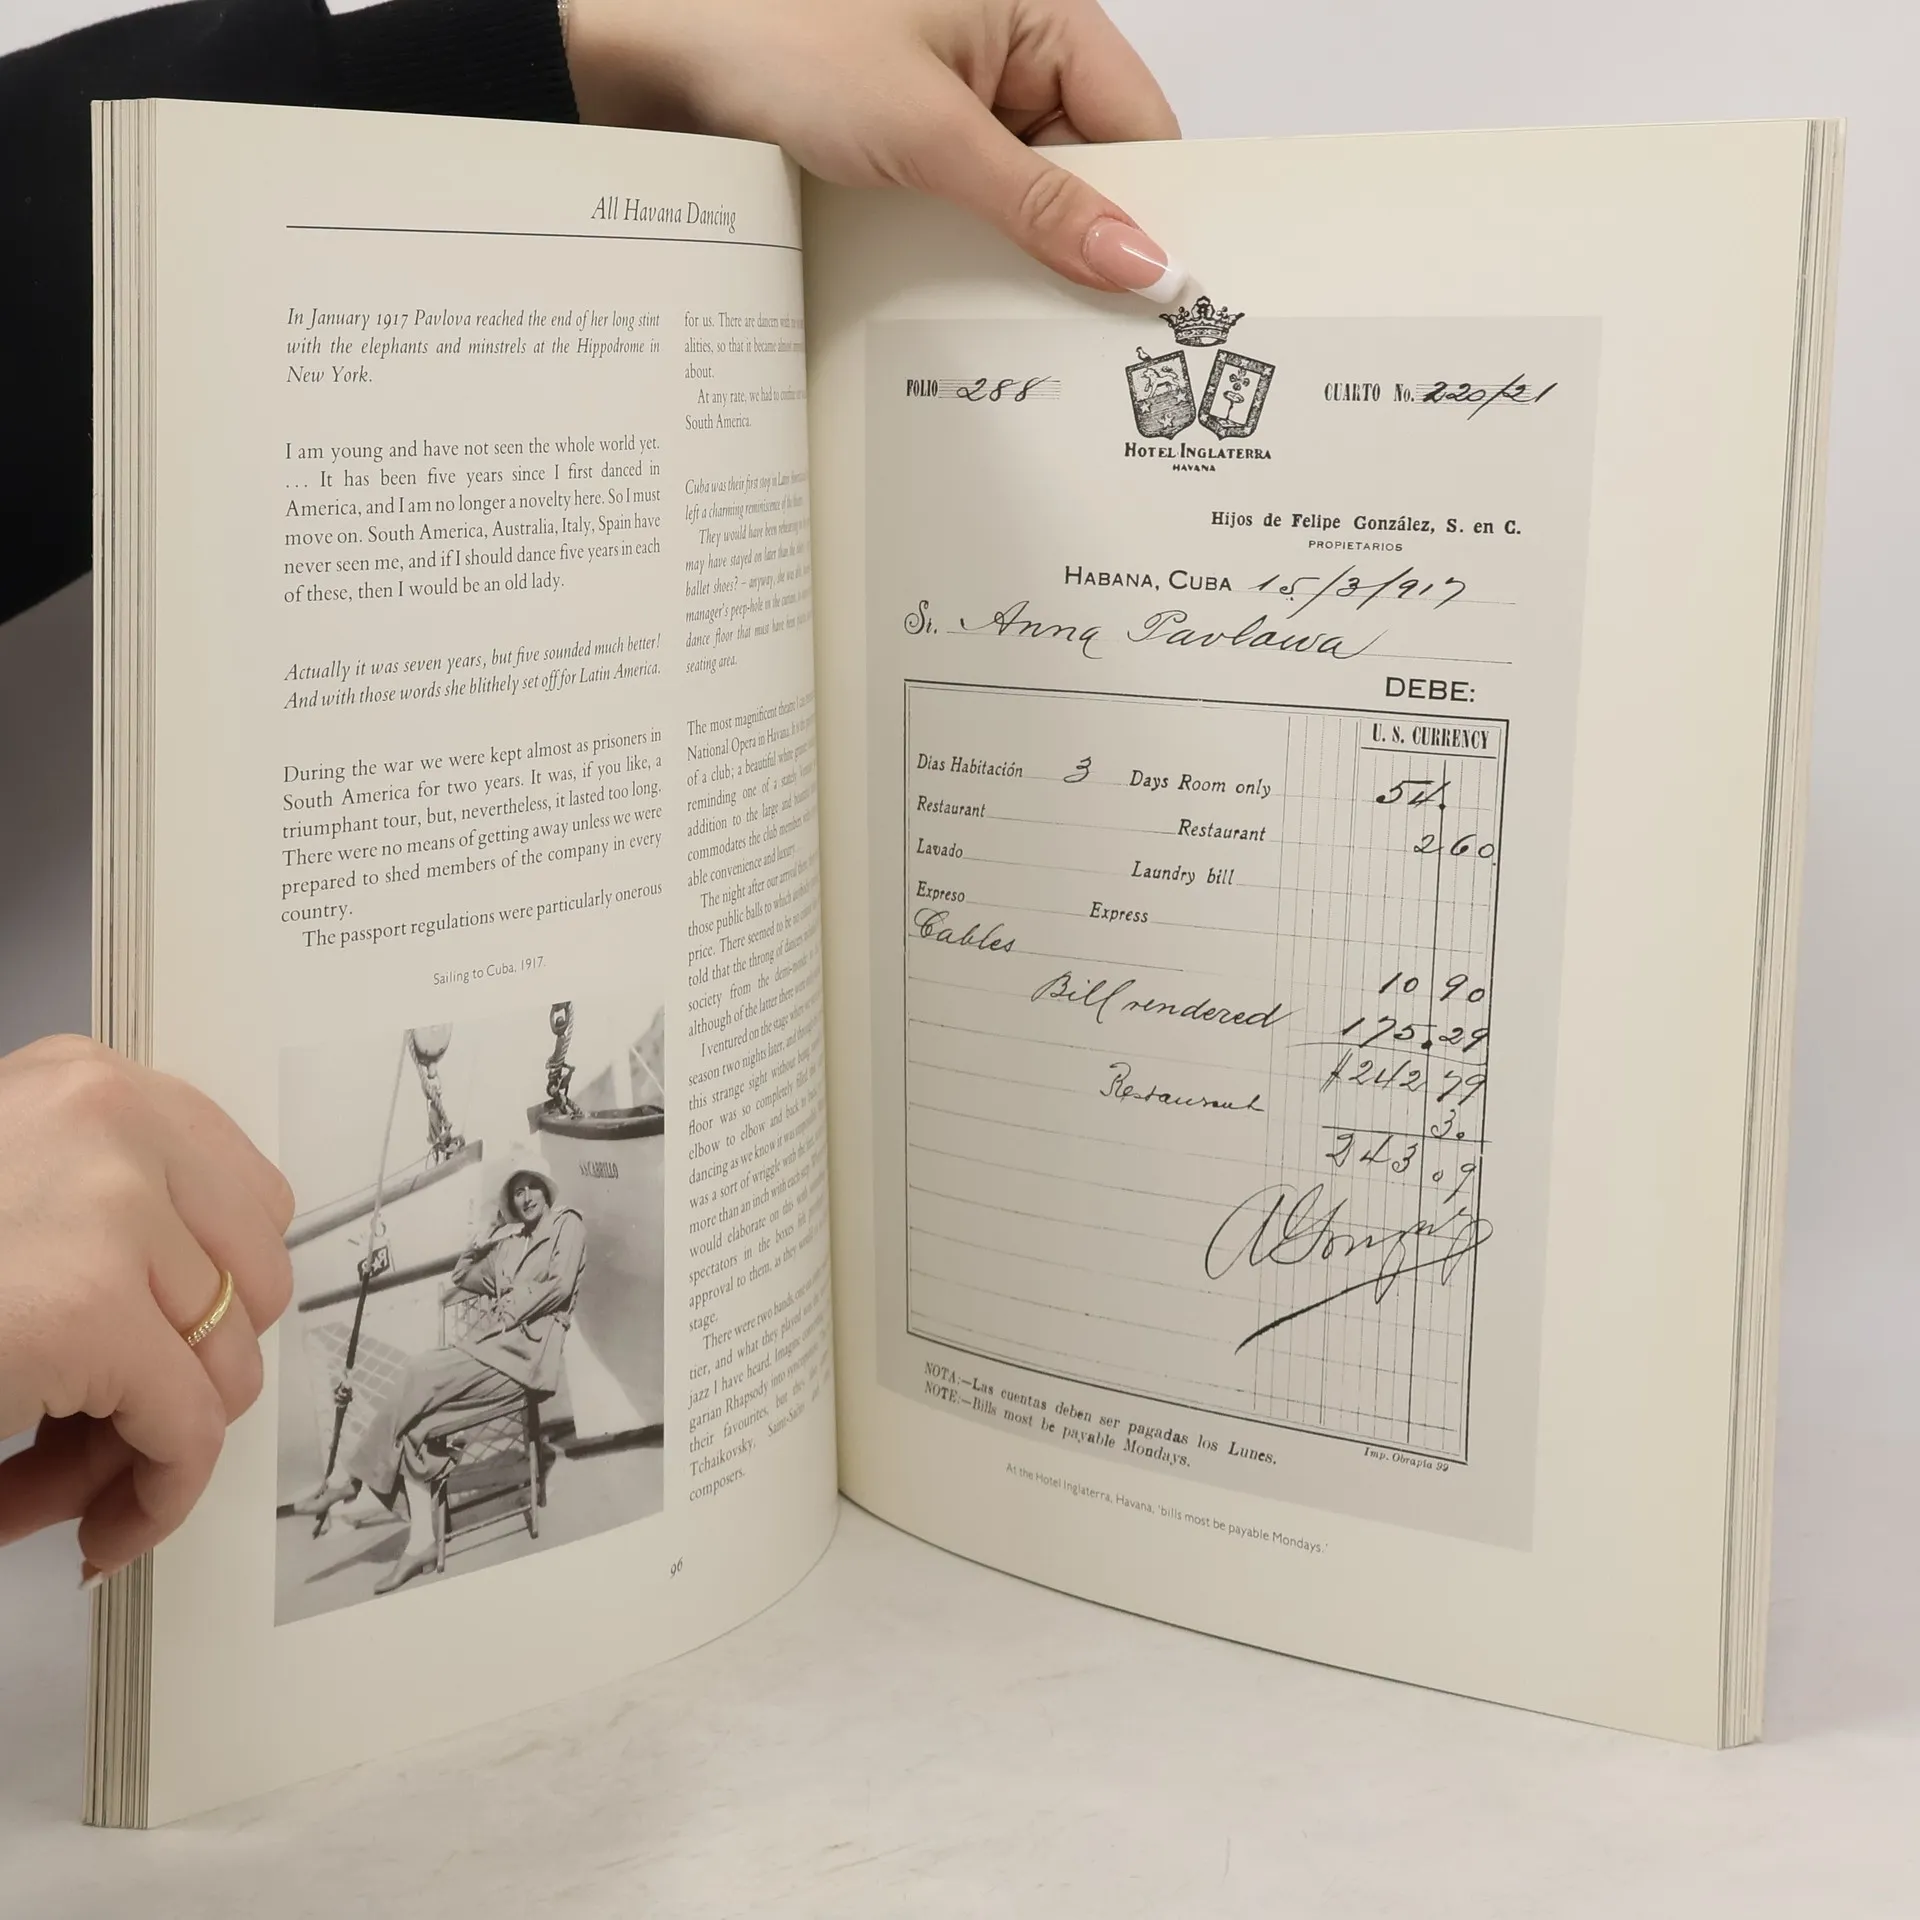 All Havana Dancing
In January 1917 Pavlova reached the end of her long stint
with the elephants and minstrels at the Hippodrome in
New York.
I am young and have not seen the whole world yet.
... It has been five years since I first danced in
America, and I am no longer a novelty here. So I must
move on. South America, Australia, Italy, Spain have
never seen me, and if I should dance five years in each
of these, then I would be an old lady.
Actually it was seven years, but five sounded much better!
And with those words she blithely set off for Latin America.
During the war we were kept almost as prisoners in
South America for two years. It was, if you like, a
triumphant tour, but, nevertheless, it lasted too long.
There were no means of getting away unless we were
prepared to shed members of the company in every
country.
The passport regulations were particularly onerous
Sailing to Cuba, 1917.
S.S CABRILLO
for us. There are dancers with
alities, so that it became almost
about.
At any rate, we had to confine
South America.
Cuba was their first stop in Latin America
left a charming reminiscence of the theatre
They would have been rehearsing
may have stayed on later than the
ballet shoes? – anyway, she was
manager's peep-hole in the curtain
dance floor that must have been
seating area.
The most magnificent theatre I
National Opera in Havana. It is
of a club; a beautiful white
reminding one of a stately
addition to the large and
commodates the club members
able convenience and luxury.
The night after our arrival there
those public balls to which anybody
price. There seemed to be no
told that the throng of dancers
society from the demi-monde
although of the latter there were
I ventured on the stage when
season two nights later, and through
this strange sight without being
floor was so completely filled
elbow to elbow and back to back
dancing as we know it was
was a sort of wriggle with the feet
more than an inch with each step.
would elaborate on this with
spectators in the boxes
approval to them, as they would
stage.
There were two bands, one
tier, and what they played was the
jazz I have heard. Imagine
garian Rhapsody into syncopated
their favourites, but they also
Tchaikovsky, Saint-Saëns
composers.
96
FOLIO 288
CUARTO No. 220/21
HOTEL INGLATERRA
HAVANA
Hijos de Felipe González, S. en C.
PROPIETARIOS
HABANA, CUBA 15/3/917
Sr. Anna Pavlowa
DEBE:
U. S. CURRENCY
Dias Habitación 3 Days Room only 54.
Restaurant Restaurant 2 60
Lavado Laundry bill
Expreso Express
Cables 10 90
Bill rendered 175.29
$242 79
Restaurant 3.
243.09
NOTA:—Las cuentas deben ser pagadas los Lunes.
NOTE:—Bills most be payable Mondays.
Imp. Obrapia 99
At the Hotel Inglaterra, Havana, 'bills most be payable Mondays.'